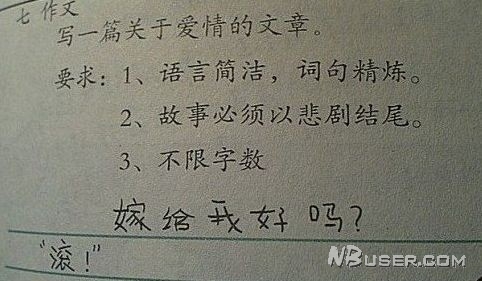 七 作文
写一篇关于爱情的文章。
要求：1、语言简洁，词句精炼。
2、故事必须以悲剧结尾。
3、不限字数
嫁给我好吗？
“滚！”
NBUSER.COM